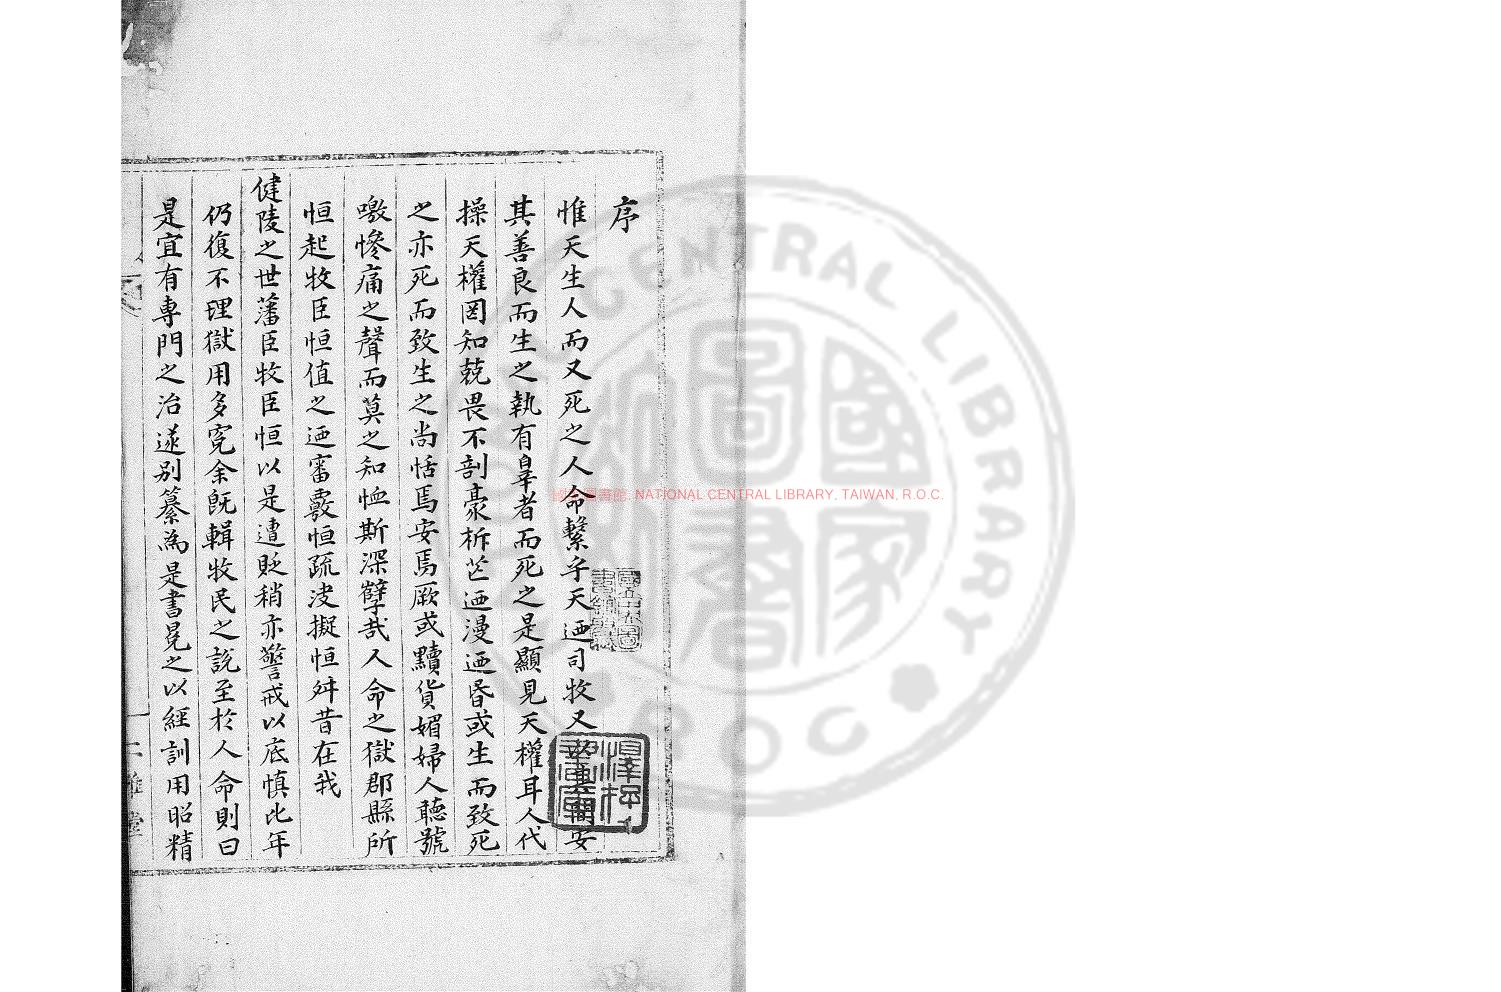 序
惟天生人而又死之人命繫乎天迺司牧又以其間安
其善良而生之執有辠者而死之是顯見天權耳人代
操天權罔知兢畏不剖豪析芒迺漫迺昏或生而致死
之亦死而致生之尚恬焉安焉厥或黷貨媚婦人聽號
噭慘痛之聲而莫之知恤斯深孽哉人命之獄郡縣所
恒起牧臣恒值之迺審覈恒疏決擬恒舛昔在我
健陵之世藩臣牧臣恒以是遭貶稍亦警戒以底慎比年
仍復不理獄用多寃余既輯牧民之說至於人命則曰
是宜有專門之治遂別纂為是書冕之以經訓用昭精
國立中央圖書館收藏
國家圖書館 NATIONAL CENTRAL LIBRARY, TAIWAN, R.O.C.
NATIONAL CENTRAL LIBRARY
R.O.C
國家圖書